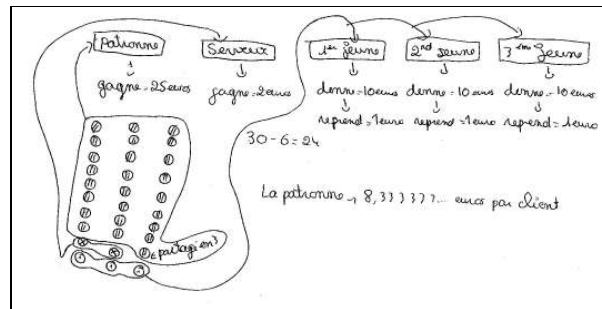 Patronne Serveur 1er jeune 2nd jeune 3ème jeune
gagne = 25 euros gagne = 2 euros donne = 10 euros donne = 10 euros donne = 10 euros
reprend = 1 euro reprend = 1 euro reprend = 1 euro
30 - 6 = 24
La patronne → 8,333333... euros par client